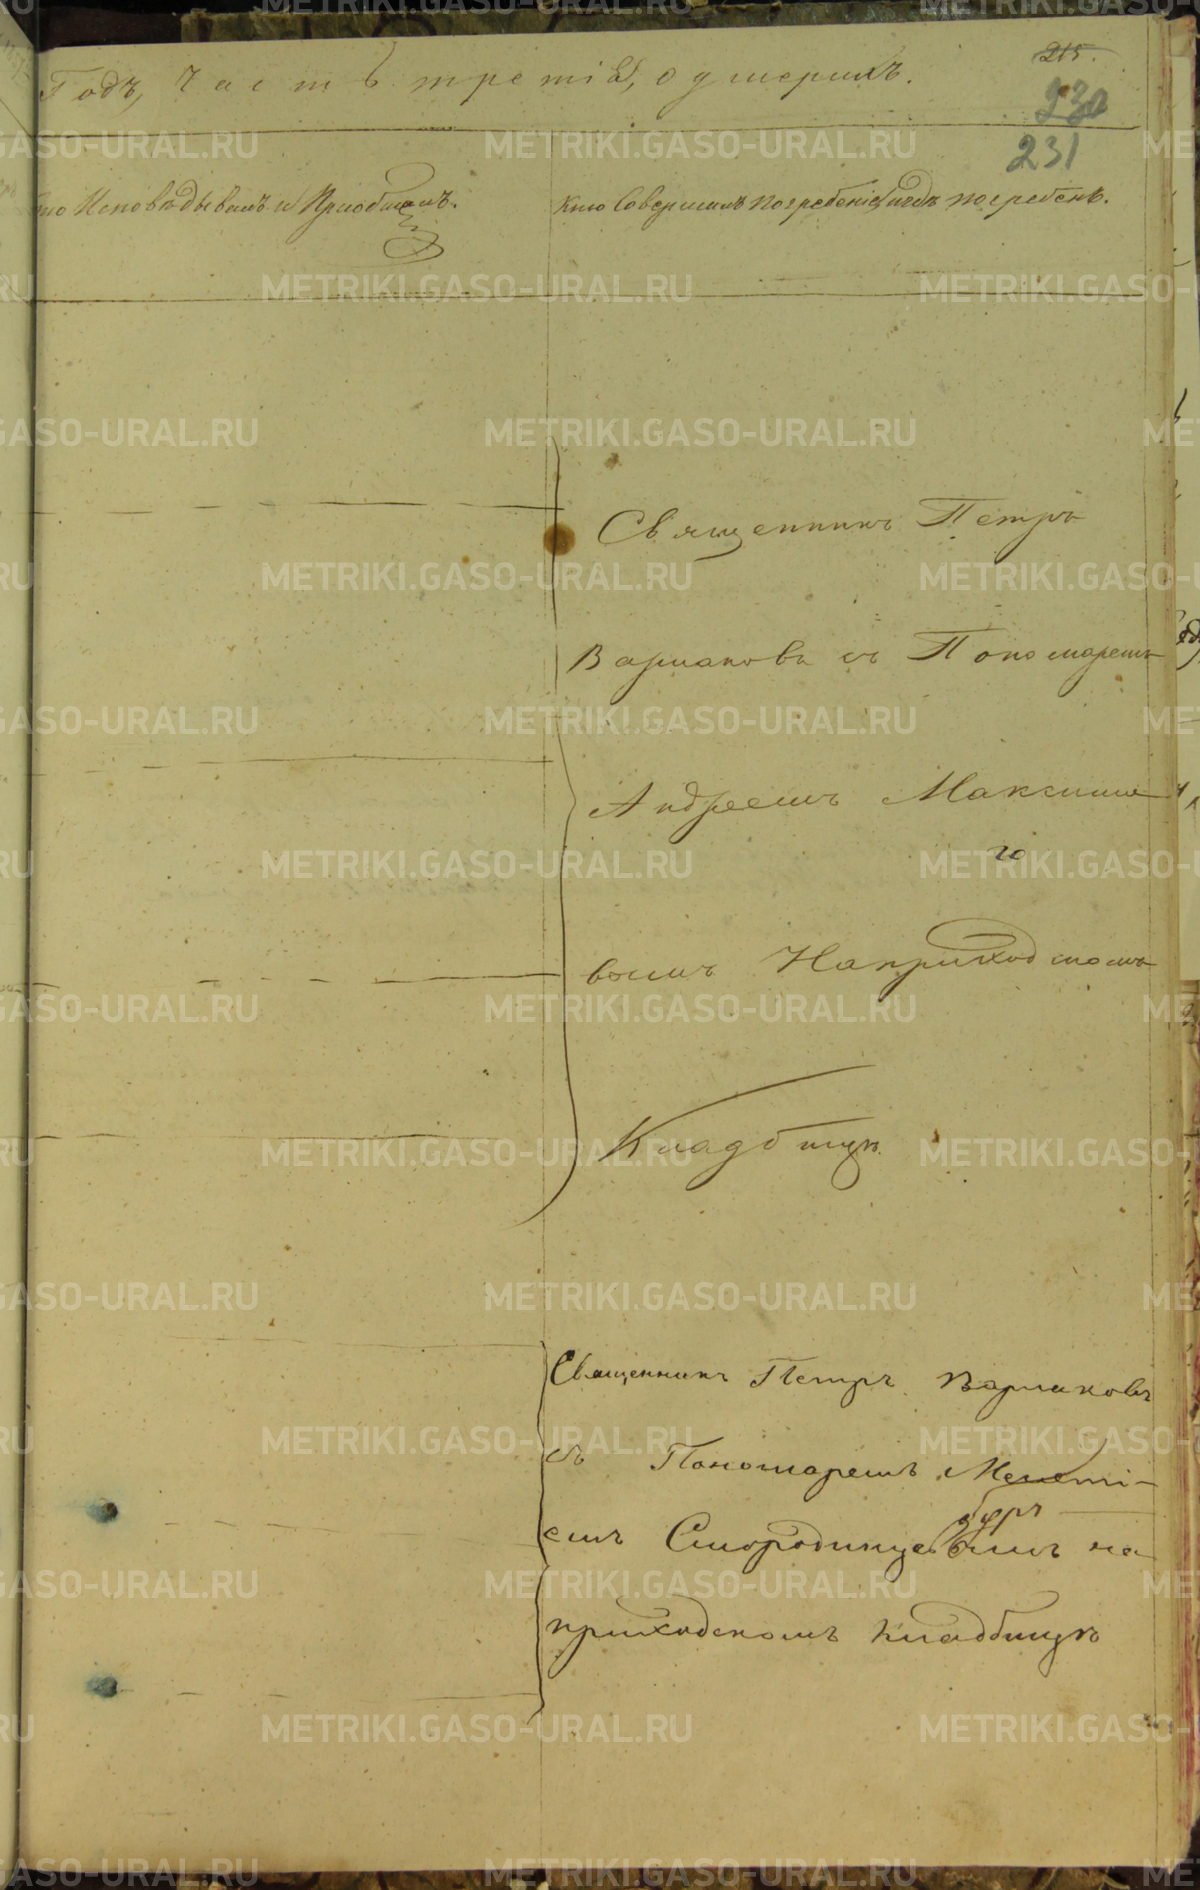 215.
Годъ, Часть третія, о умершихъ.
230
231
то Исповѣдывалъ и Пріобщалъ.
Кто Совершалъ погребеніе и гдѣ погребенъ.
Священникъ Петръ
Варлаковъ съ Пономаремъ
Андреемъ Максимо
вымъ На приходскомъ
Кладбищѣ.
Священникъ Петръ Варлаковъ
съ Пономаремъ Мелеті-
емъ Смородинцовымъ на
приходскомъ кладбищѣ
METRIKI.GASO-URAL.RU